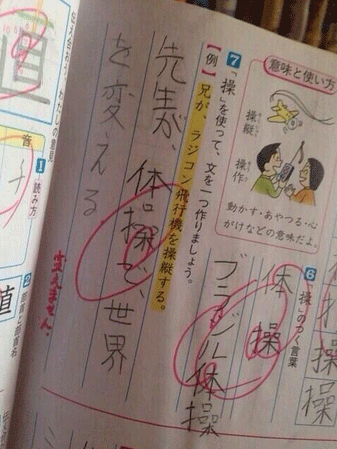 意味と使い方
操縦
操作
動かす・あやつる・心
がけなどの意味だよ。
7 「操」を使って、文を一つ作りましょう。
【例】兄が、ラジコン飛行機を操縦する。
先生が、体操で世界
を変える
変えません。
6 「操」のつく言葉
体操
ブラジル体操
操
操
操
わたしの意見
音
1 読み方
2
値
直